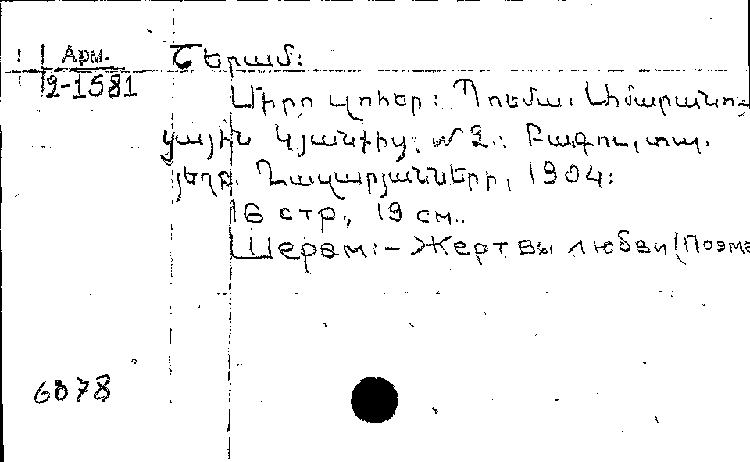 Арм.
2-1581
Շերամ:
Սիրո զոհեր: Պոեմա: Լիմարանո-
ցային կյանքից: № 2.: Բագու, տպ.
Ղազարյանների, 1904:
16 стр., 19 см..
Шерам:- Жертвы любви (Поэма
6878